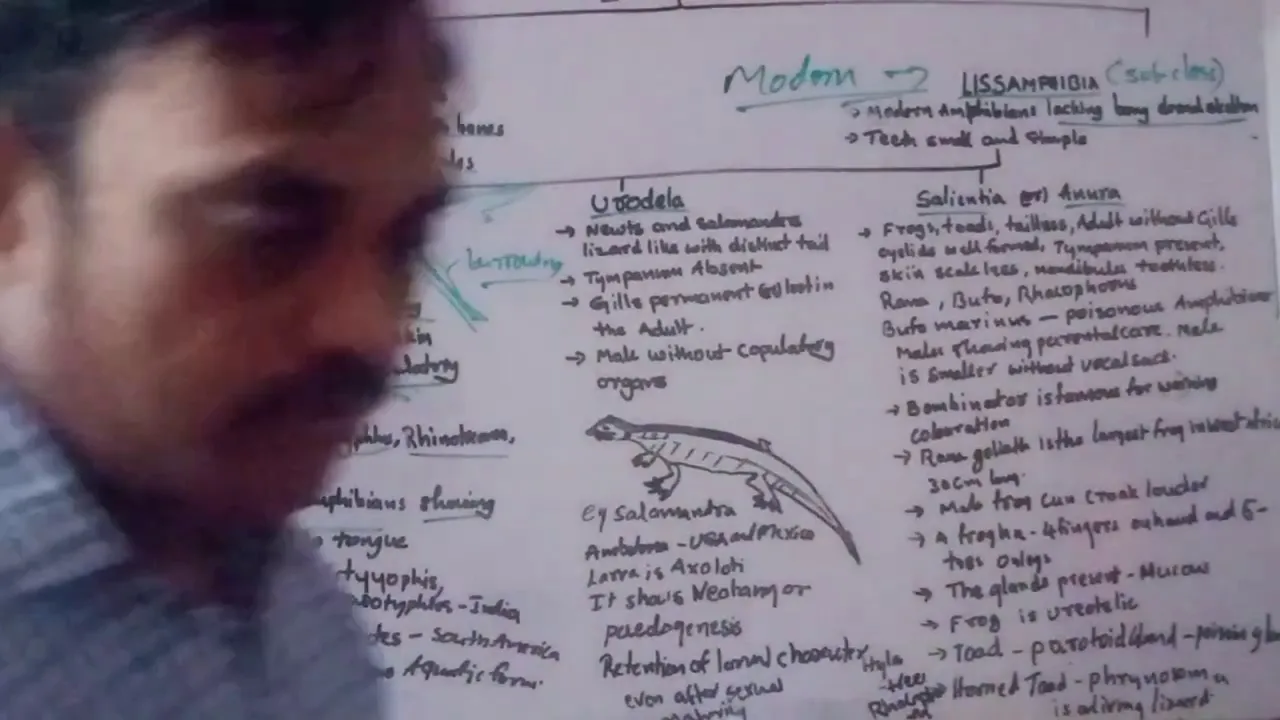 Modern → LISSAMPHIBIA (sub class)
→ Modern Amphibians lacking bony dermal skeleton
→ Teeth small and Simple
bones
burrowing
kin
Rhinotrema,
phibians showing
tongue
tyyophis,
eotyphlus - India
tes - South America
Aquatic form.
Urodela
→ Newts and salamandra
lizard like with distinct tail
→ Tympanum Absent
→ Gills permanent or lost in
the Adult.
→ Male without copulatory
organs
eg salamandra
- USA and Mexico
Larva is Axolotl
It shows Neoteny or
paedogenesis
Retention of larval character
even after sexual
maturity
Salientia (or) Anura
→ Frogs, toads, tailless, Adult without Gills
eyelids well formed, Tympanum present,
skin scaleless, mandibular toothless.
Rana, Bufo, Rhacophorus
Bufo marinus - poisonous Amphibian
Males showing parental care. Male
is smaller without vocal sacs.
→ Bombinator is famous for warning
colouration
→ Rana goliath is the largest frog in west afric
30cm long.
→ Male frog can croak louder
→ A frog has - 4 fingers on hand and 5-
toes on legs
→ The glands present - Mucous
→ Frog is ureotelic
→ Toad - parotoid gland - poison gl
→ Horned Toad - phrynosoma
is a living lizard.
Hyla
- tree